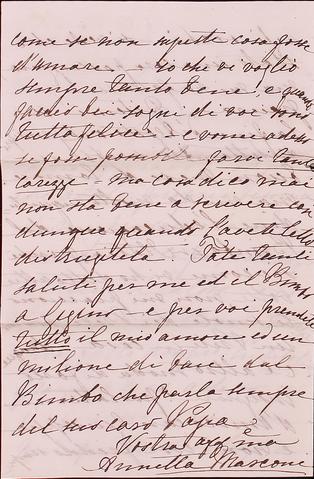 come se non sapeste cosa fosse
d'amare - io che vi voglio
sempre tanto bene, e quando
faccio dei sogni di voi sono
tutta felice - e vorrei adesso
se fosse possibile farvi tante
carezze - ma cosa dico mai
non sta bene a scrivere con
dunque quando l'avete letta
distruggetela Fate tanti
saluti per me ed il Bimbo
a Gigino - e per voi prendete
tutto il mio amore ed un
milione di baci dal
Bimbo che parla sempre
del suo caro Papà
Vostra aff.ma
Annetta Marconi